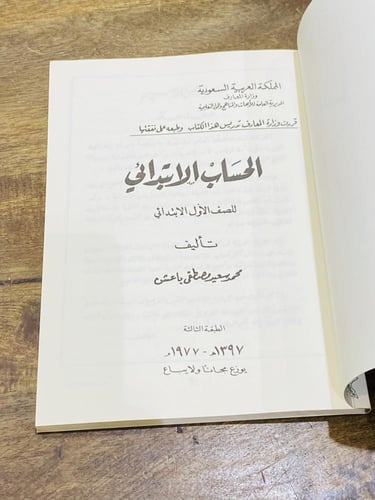 المملكة العربية السعودية
وزارة المعارف
المديرية العامة للأبحاث والمناهج والمواد التعليمية
قررت وزارة المعارف تدريس هذا الكتاب وطبعه على نفقتها
الحساب الابتدائي
للصف الأول الابتدائي
تأليف
محمد سعيد ومصطفى باعشن
الطبعة الثالثة
١٣٩٧هـ - ١٩٧٧م
يوزع مجانا ولا يباع